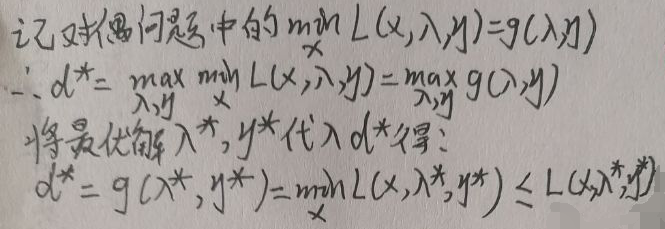 记对偶问题中的 min_x L(x,λ,y)=g(λ,y)
∴ d*= max_{λ,y} min_x L(x,λ,y)= max_{λ,y} g(λ,y)
将最优解 λ*, y* 代入 d* 得:
d* = g(λ*, y*) = min_x L(x,λ*,y*) ≤ L(x,λ*,y*)